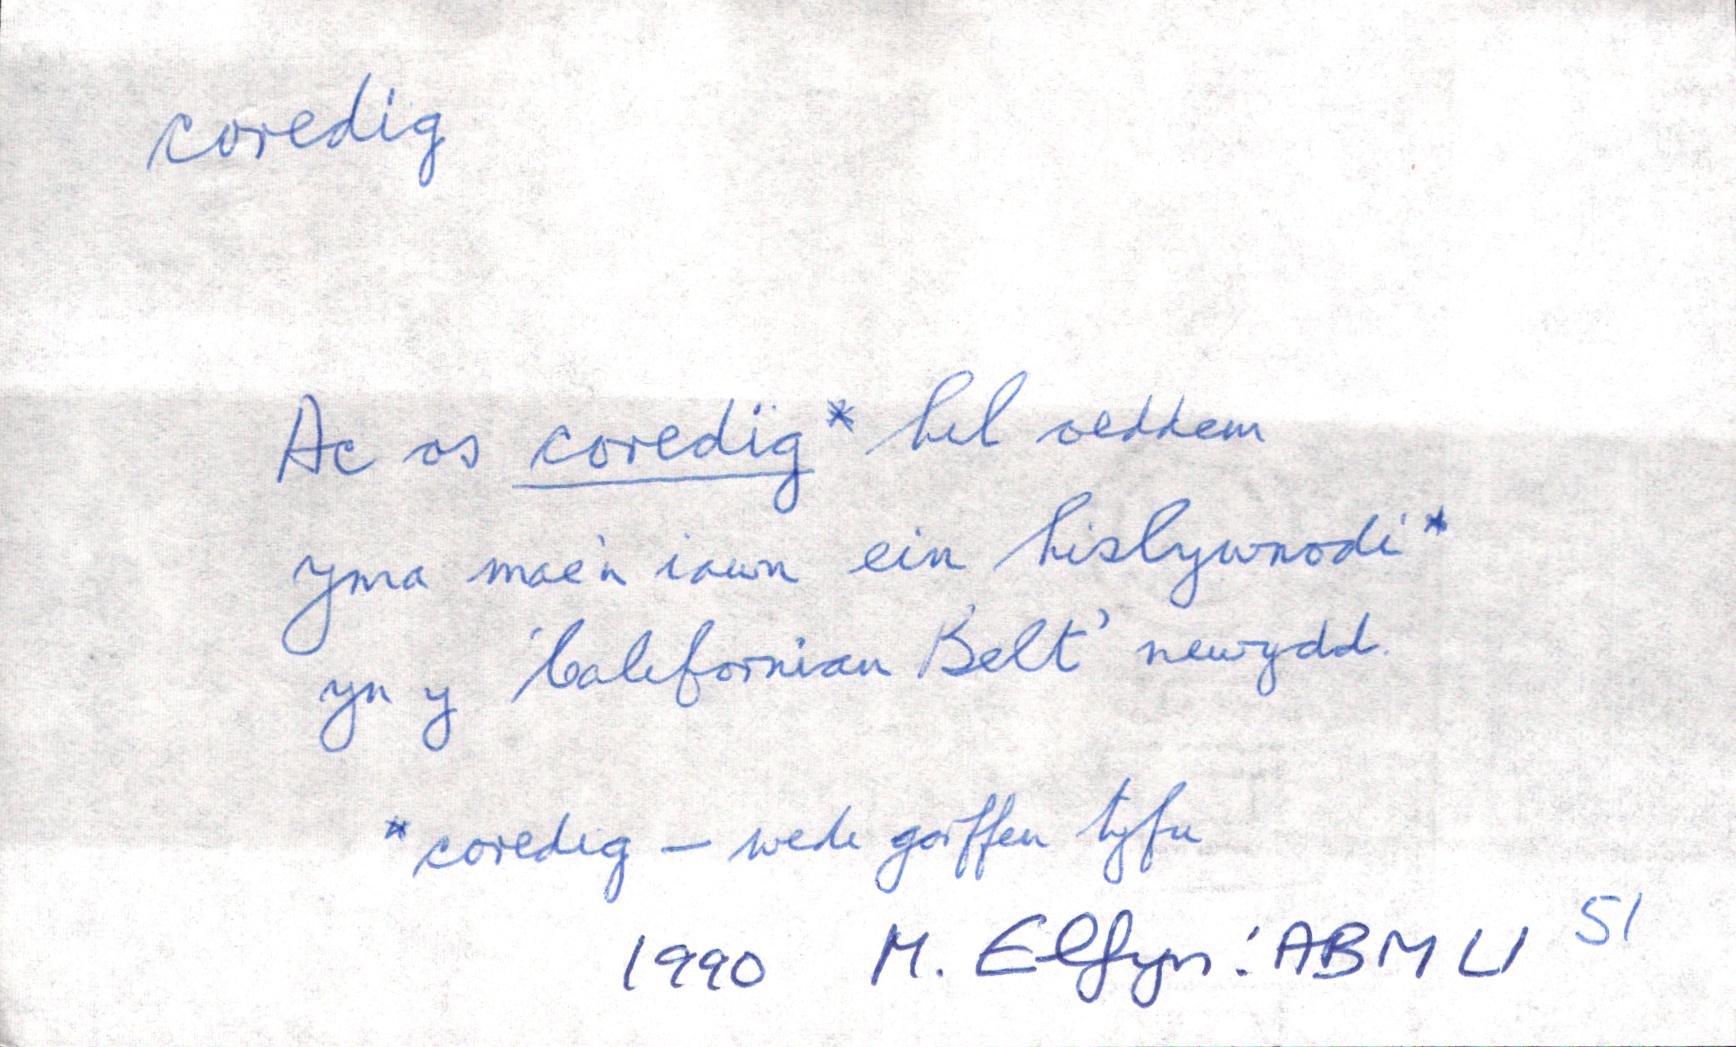 coredig
Ac os coredig* hil oeddem
yma mae'n iawn ein hislywnodi*
yn y 'Californian Belt' newydd.
*coredig – wedi gorffen tyfu
1990 M. Elfyn: ABMLl 51